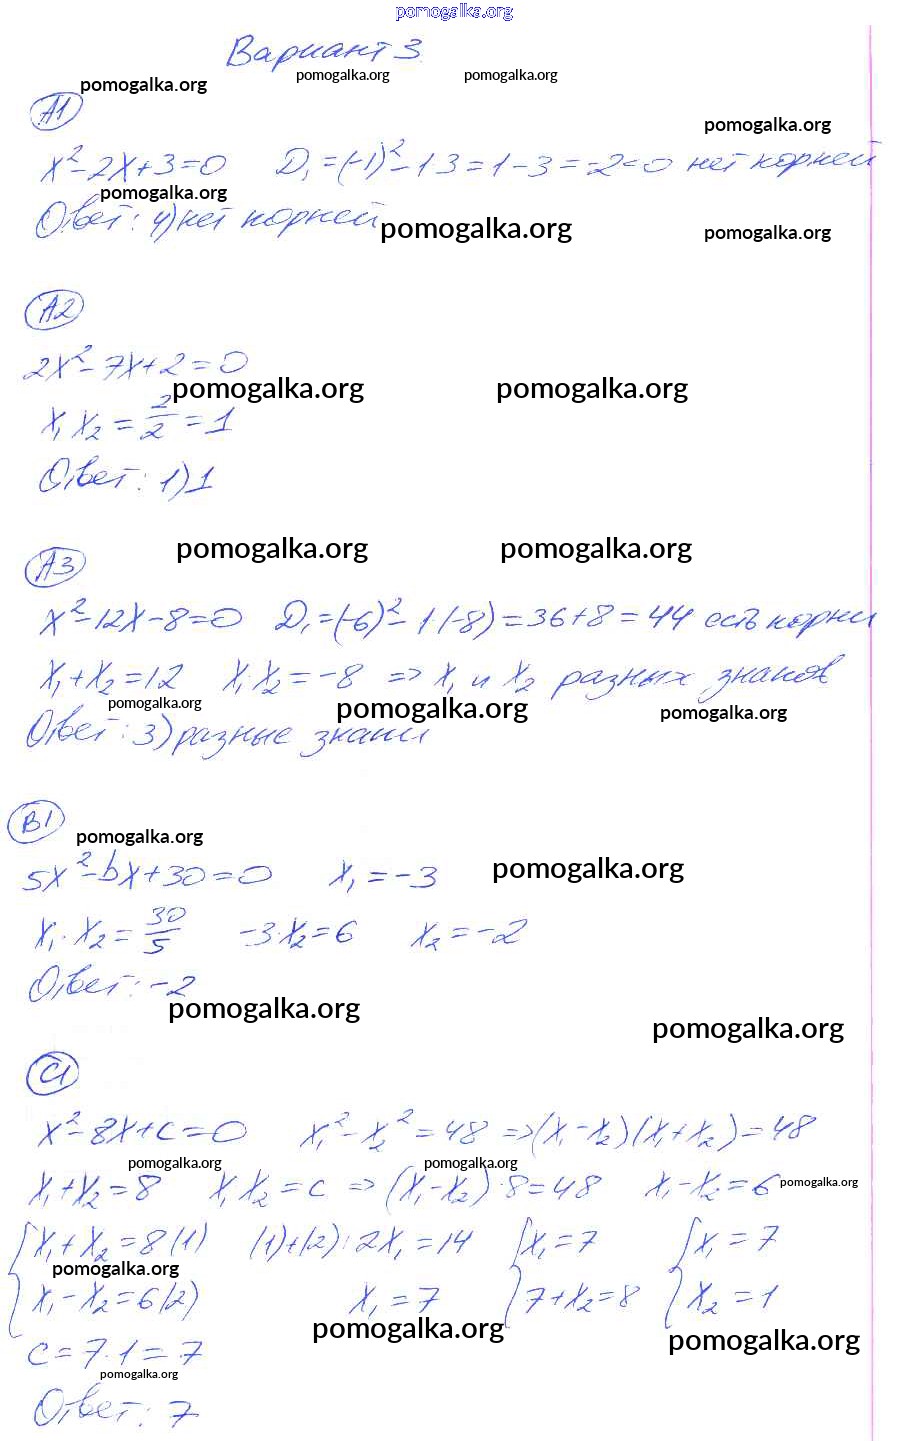 pomogalka.org
Вариант 3
pomogalka.org pomogalka.org pomogalka.org
А1
pomogalka.org
x²-2x+3=0 D₁=(-1)²-1·3=1-3=-2<0 нет корней
pomogalka.org
Ответ: 4) нет корней
pomogalka.org pomogalka.org
А2
2x²-7x+2=0
pomogalka.org pomogalka.org
x₁x₂=2/2=1
Ответ: 1) 1
pomogalka.org pomogalka.org
А3
x²-12x-8=0 D₁=(-6)²-1·(-8)=36+8=44 есть корни
x₁+x₂=12 x₁·x₂=-8 => x₁ и x₂ разных знаков
pomogalka.org pomogalka.org pomogalka.org
Ответ: 3) разные знаки
В1
pomogalka.org
5x²-bx+30=0 x₁=-3
pomogalka.org
x₁·x₂=30/5 -3·x₂=6 x₂=-2
Ответ: -2
pomogalka.org pomogalka.org
С1
x²-8x+c=0 x₁²-x₂²=48 =>(x₁-x₂)(x₁+x₂)=48
pomogalka.org pomogalka.org
x₁+x₂=8 x₁x₂=c => (x₁-x₂)·8=48 x₁-x₂=6
pomogalka.org
{x₁+x₂=8 (1) (1)+(2): 2x₁=14 {x₁=7 {x₁=7
pomogalka.org
x₁-x₂=6 (2) x₁=7 7+x₂=8 x₂=1
pomogalka.org pomogalka.org pomogalka.org
c=7·1=7
pomogalka.org
Ответ: 7